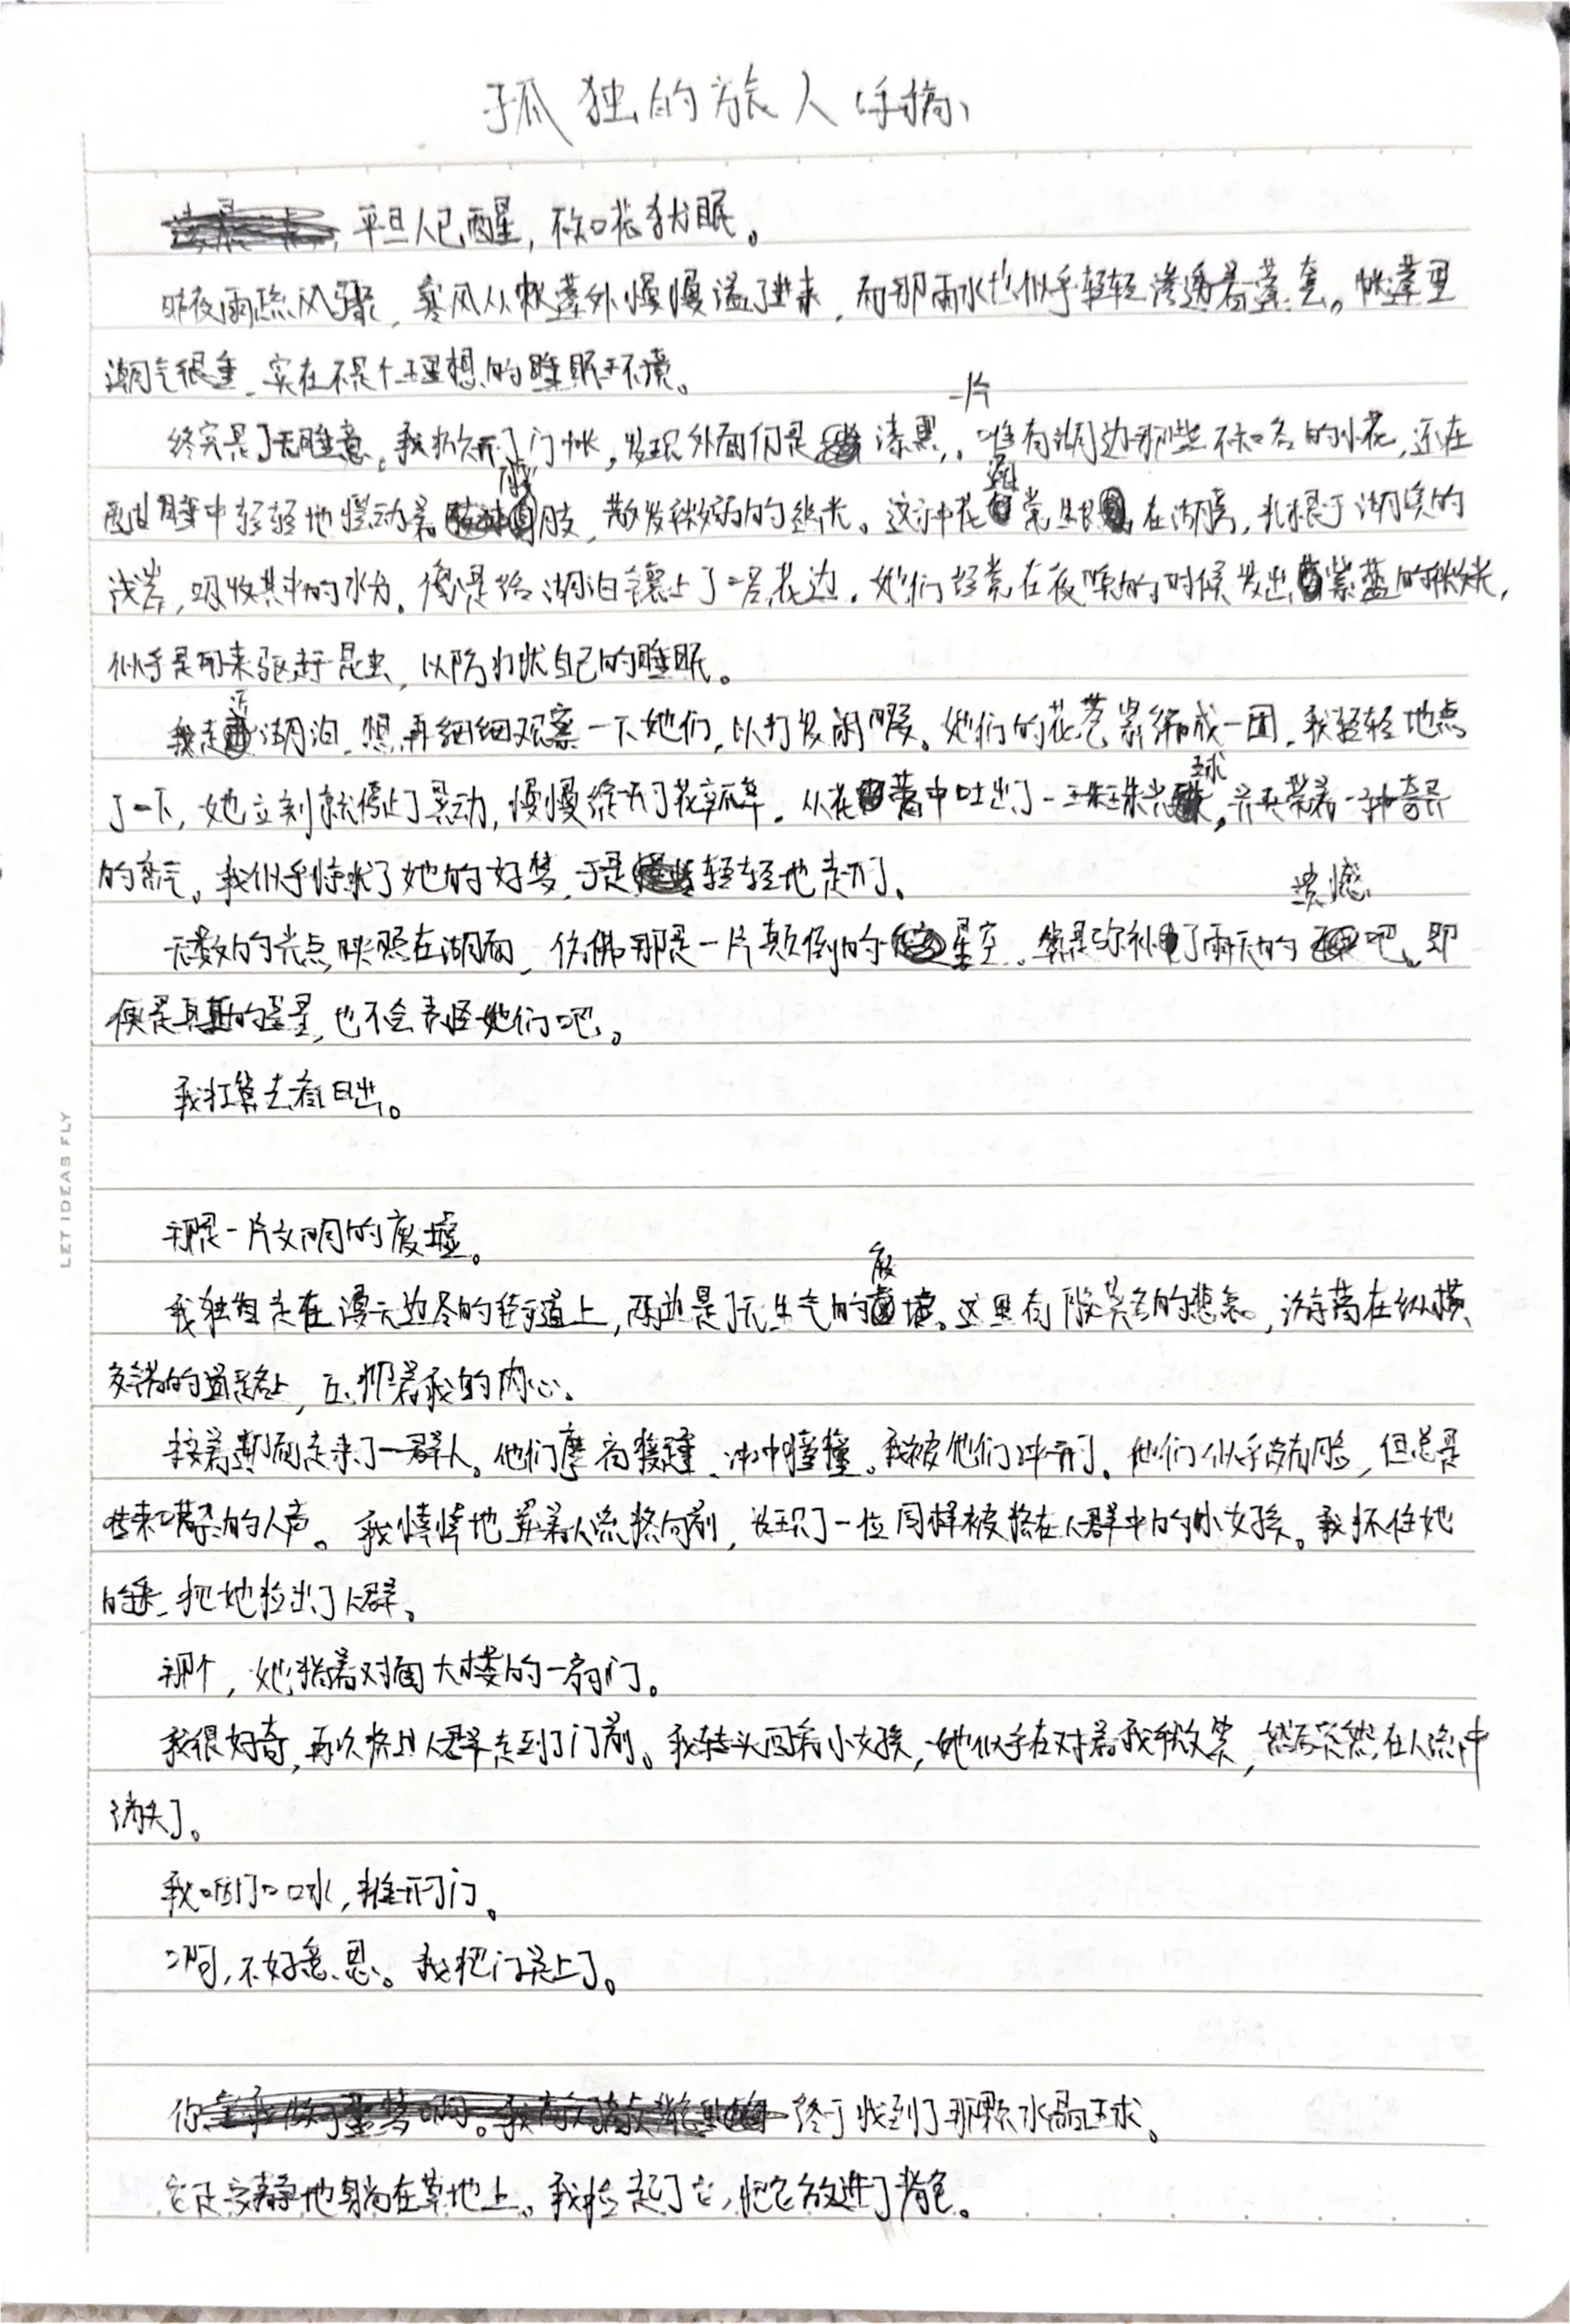 孤独的旅人（手稿）
平旦人已醒，不知花犹眠。
昨夜雨疏风骤，寒风从帐篷外慢慢溢了进来，而那雨水也似乎轻轻渗透着篷套。帐篷里
潮气很重，实在不是个理想的睡眠环境。
终究是了无睡意。我拆开了门帐，发现外面仍是一片漆黑，。唯有湖边那些不知名的小花，还在
酣睡中轻轻地摆动着腰肢，散发微弱的丝光。这种花通常生长在湖旁，扎根于湖滨的
浅岩，吸收其中的水分。像是给湖泊镶上了一层花边。她们经常在夜晚的时候发出紫蓝的微光，
似乎是用来驱赶昆虫，以防打扰自己的睡眠。
我走近湖泊，想再细细观察一下她们，以打发闲暇。她们的花苞紧缩成一团，我轻轻地点
了一下，她立刻就停止了晃动，慢慢绽开了花瓣。从花蕾中吐出了一珠珠光球，并夹带着一种奇异
的香气。我似乎惊扰了她的好梦，于是轻轻地走开了。
无数的光点映照在湖面，仿佛那是一片颠倒的星空。算是弥补了雨天的遗憾吧。即
便是真正的星星，也不会责怪她们吧。
我打算去看日出。
LET IDEAS FLY
那是一片文明的废墟。
我独自走在漫无边尽的街道上，两边是了无生气的废墟。这里有股莫名的悲哀，游荡在纵横
交错的道路上，叩着我的内心。
接着迎面走来了一群人。他们摩肩接踵、冲冲撞撞。我被他们冲开了。他们似乎没有脸，但总是
传来嘈杂的人声。我悻悻地并着人流挤向前，发现了一位同样被挤在人群中的小女孩。我抓住她
的手，把她拉出了人群。
那个，她指着对面大楼的一扇门。
我很好奇，再次挤出人群走到了门前。我转头回看小女孩，她似乎在对着我微笑，然后突然在人流中
消失了。
我咽了口口水，推开了门。
啊，不好意思。我把门关上了。
你 终于找到了那颗水晶球。
它正安静地躺在草地上。我捡起了它，把它放进了背包。